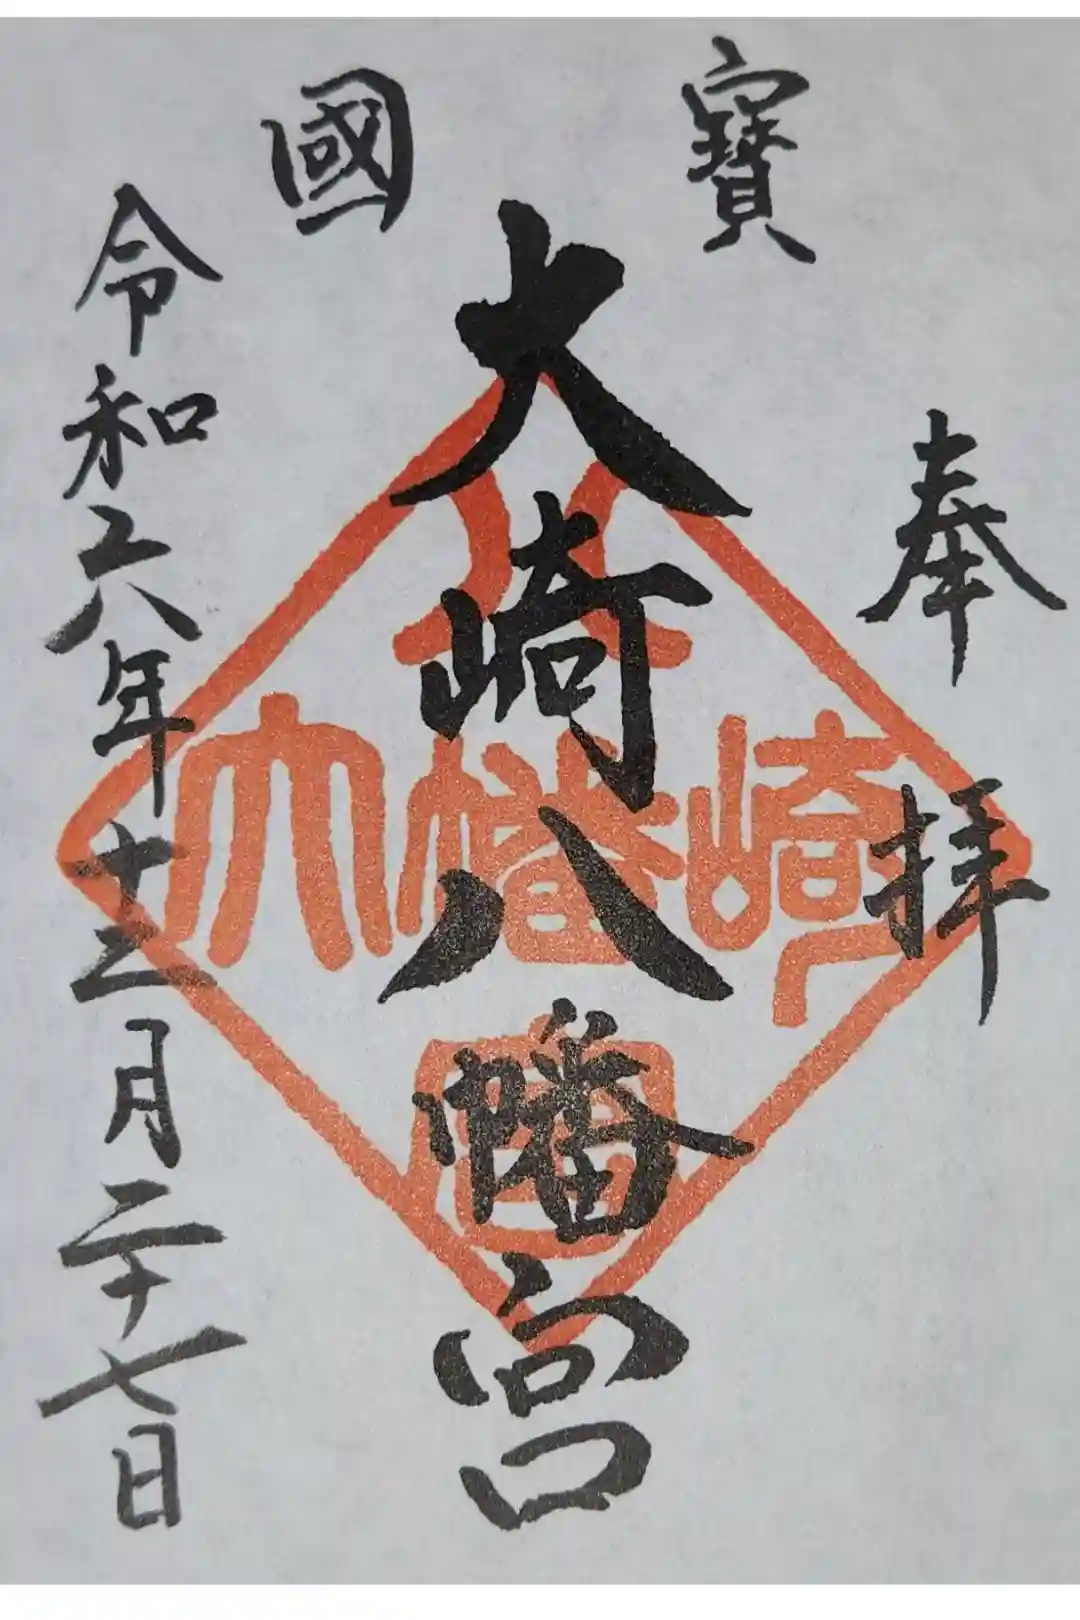 國寶
奉拝
大崎八幡宮
令和六年十二月二十七日
八
大幡崎
宮